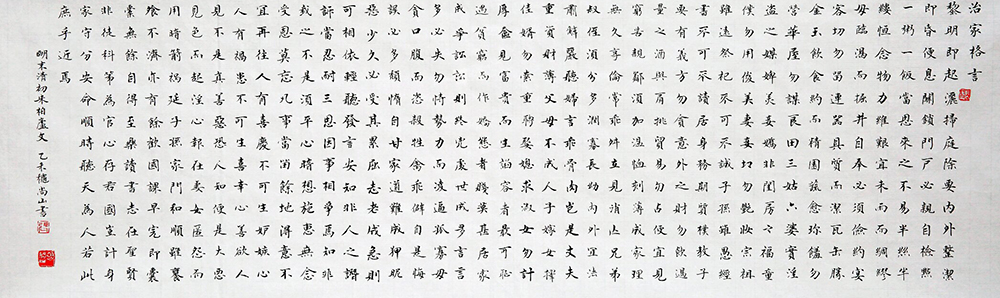 治家格言
黎明即起灑掃庭除要內外整潔
即昏便息關鎖門戶必親自檢點
一粥一飯當思來之不易半絲半
縷恒念物力維艱宜未雨而綢繆
毋臨渴而掘井自奉必須儉約宴
客切勿留連器具質而潔瓦缶勝
金玉飲食約而精園蔬愈珍饈勿
營華屋勿謀良田三姑六婆實淫
盜之媒婢美妾嬌非閨房之福童
僕勿用俊美妻妾切忌艷妝宗祖
雖遠祭祀不可不誠子孫雖愚經
書不可不讀居身務期質樸教子
要有義方勿貪意外之財勿飲過
量之酒與肩挑貿易勿占便宜見
窮苦親鄰須加溫恤刻薄成家理
無久享倫常乖舛立見消亡兄弟
叔侄須分多潤寡長幼內外宜法
肅辭嚴聽婦言乖骨肉豈是丈夫
重資財薄父母不成人子嫁女擇
佳婿毋索重聘娶媳求淑女勿計
厚奩見富貴而生諂容者最可恥
遇貧窮而作驕態者賤莫甚居家
戒爭訟訟則終凶處世戒多言言
多必失勿恃勢力而凌逼孤寡毋
貪口腹而恣殺牲禽乖僻自是悔
誤必多頹惰自甘家道難成狎昵
惡少久必受其累屈志老成急則
可相依輕聽發言安知非人之譖
訴當忍耐三思因事相爭焉知非
我之不是須平心暗想施惠無念
受恩莫忘凡事當留餘地得意不
宜再往人有喜慶不可生妒嫉心
人有禍患不可生喜幸心善欲人
見不是真善惡恐人知便是大惡
見色而起淫心報在妻女匿怨而
用暗箭禍延子孫家門和順雖饔
飧不濟亦有餘歡國課早完即囊
橐無餘自得至樂讀書志在聖賢
非徒科第為官心存君國豈計身
家守分安命順時聽天為人若此
庶乎近焉
明末清初朱柏廬文 乙未穗尚山書